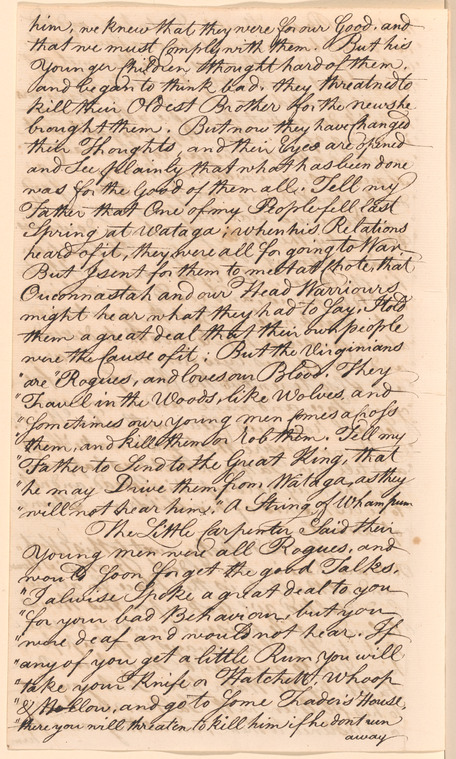 him, we knew that they were for our Good. and
that we must Comply with them. But his
Younger Children thought hard of them,
and began to think bad. they threatned to
kill their Oldest Brother for the news he
brought them. But now they have changed
their Thoughts, and their Eyes are opened
and See plainly that what has been done
was for the Good of them all. Tell my
Father that One of my People fell last
Spring at Wataga; when his Relations
heard of it, they were all for going to War
But I sent for them to meet at Chote, that
Ouconnastah and our Head Warriours
might hear what they had to Say, I told
them a great deal that their own people
were the Cause of it: But the Virginians
"are Rogues, and loves our Blood. They
"Travell in the Woods, like Wolves, and
"Sometimes our young men Comes across
"them, and kill them or rob them. Tell my
"Father to Send to the Great King, that
"he may Drive them from Wataga, as they
"will not hear him." A String of Whampum
The Little Carpenter Said their
Young men were all Rogues, and
would Soon forget the good Talks.
"I alwise Spoke a great deal to you
"for your bad Behaviour, but you
"were deaf and would not hear. If
"any of you get a little Rum, you will
"take your Knife or Hatchett, Whoop
"& Hollow, and go to Some Trader's House,
"there you will threaten to kill him if he dont run
away